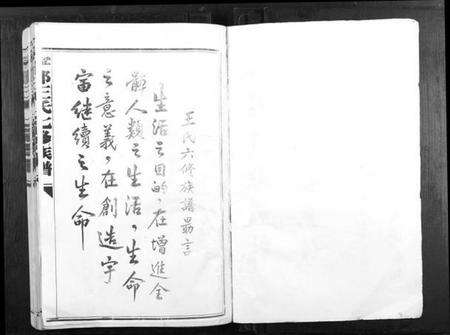 王氏六修族譜易言
生活之目的,在增進全
體人類之生活,生命
之意義,在創造宇
宙繼續之生命
王氏七修族譜